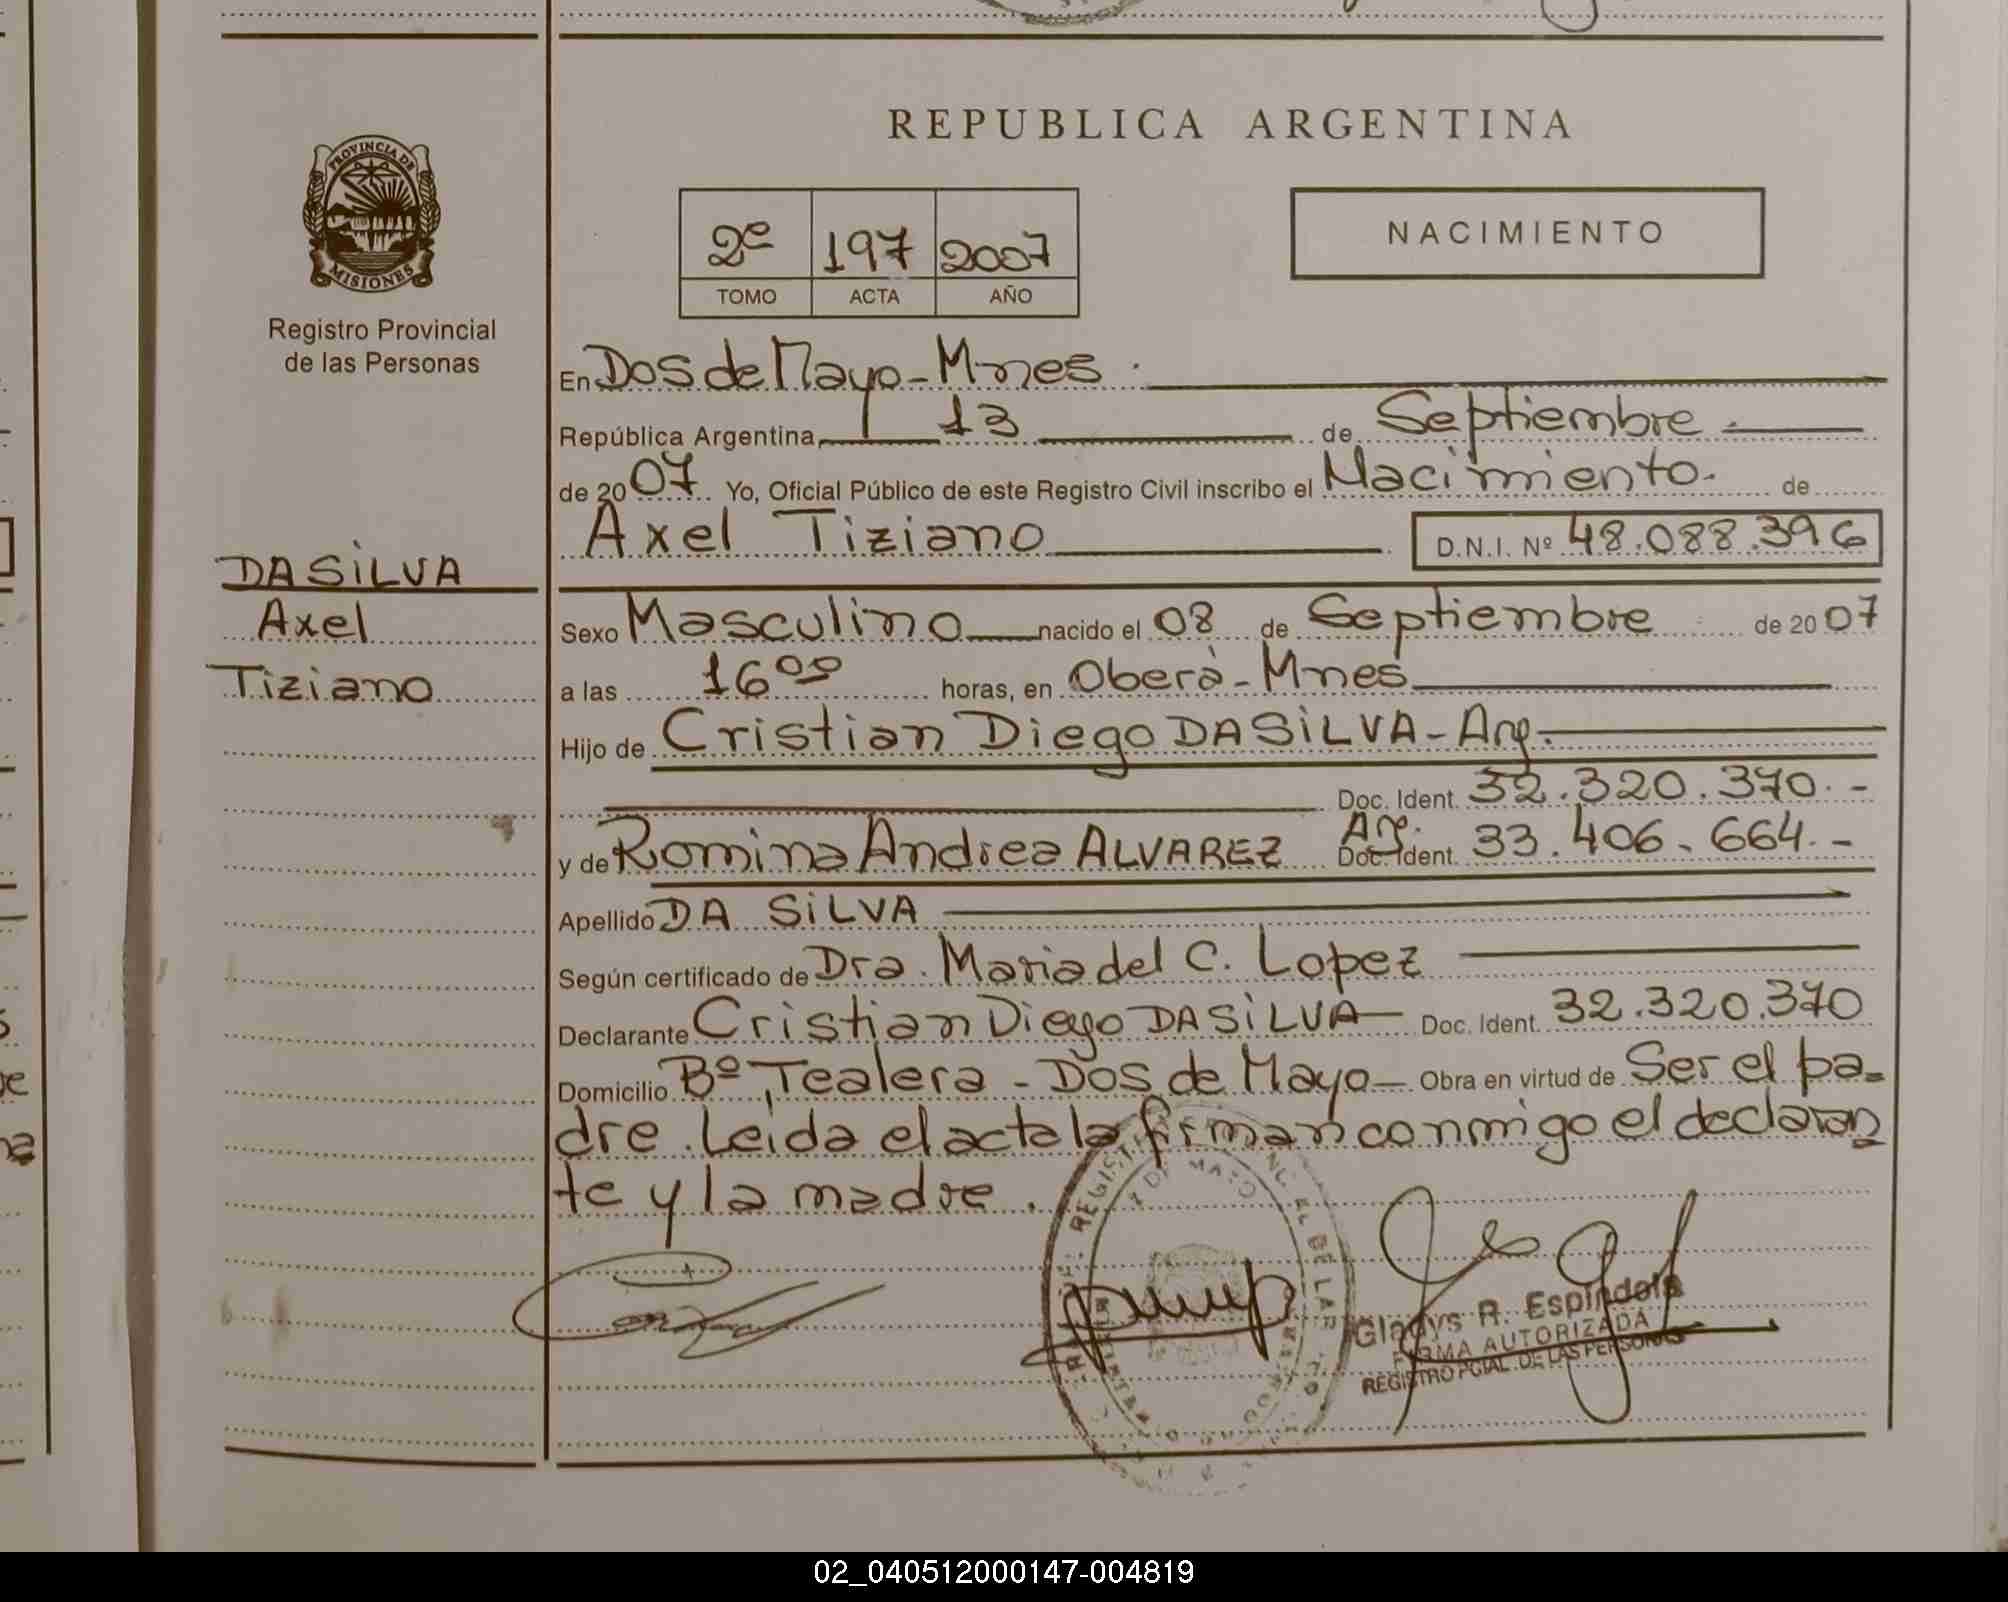 REPUBLICA ARGENTINA
PROVINCIA DE
MISIONES
Registro Provincial
de las Personas
2º 197 2007
TOMO ACTA AÑO
NACIMIENTO
En Dos de Mayo - Mnes
República Argentina, 13 de Septiembre
de 2007 Yo, Oficial Público de este Registro Civil inscribo el Nacimiento. de
Axel Tiziano D.N.I. Nº 48.088.396
DA SiLVA
Axel
Tiziano
Sexo Masculino nacido el 08 de Septiembre de 2007
a las 16 00 horas, en Oberà - Mnes
Hijo de Cristian Diego DA SiLVA - Arg.
Doc. Ident. 32.320.370.-
y de Romina Andrea ALVAREZ Arg. Doc. Ident. 33.406.664.-
Apellido DA SiLVA
Según certificado de Dra. Maria del C. Lopez
Declarante Cristian Diego DA SiLVA - Doc. Ident. 32.320.370
Domicilio Bº Tealera - Dos de Mayo - Obra en virtud de Ser el pa-
dre. Leida el acta la firman conmigo el declaran
te y la madre.
Gladys R. Espindola
FIRMA AUTORIZADA
REGISTRO PCIAL. DE LAS PERSONAS
02_040512000147-004819